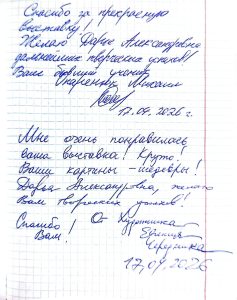 Спасибо за прекрасную
выставку!
Желаю Дарье Александровне
дальнейших творческих успехов!
Ваш бывший ученик
Михаил
17.09.2026 г.
Мне очень понравилась
ваша выставка! Круто.
Ваши картины - шедевры!
Дарья Александровна, желаю
Вам творческих успехов!
Спасибо! От Художника
Вам!
17.09.2026